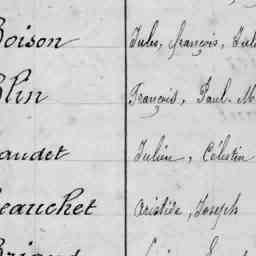 Boison Jules, François, Jul
Blin François, Paul. M
audet Julien, Célestin
eauchet Aristide, Joseph
Briand